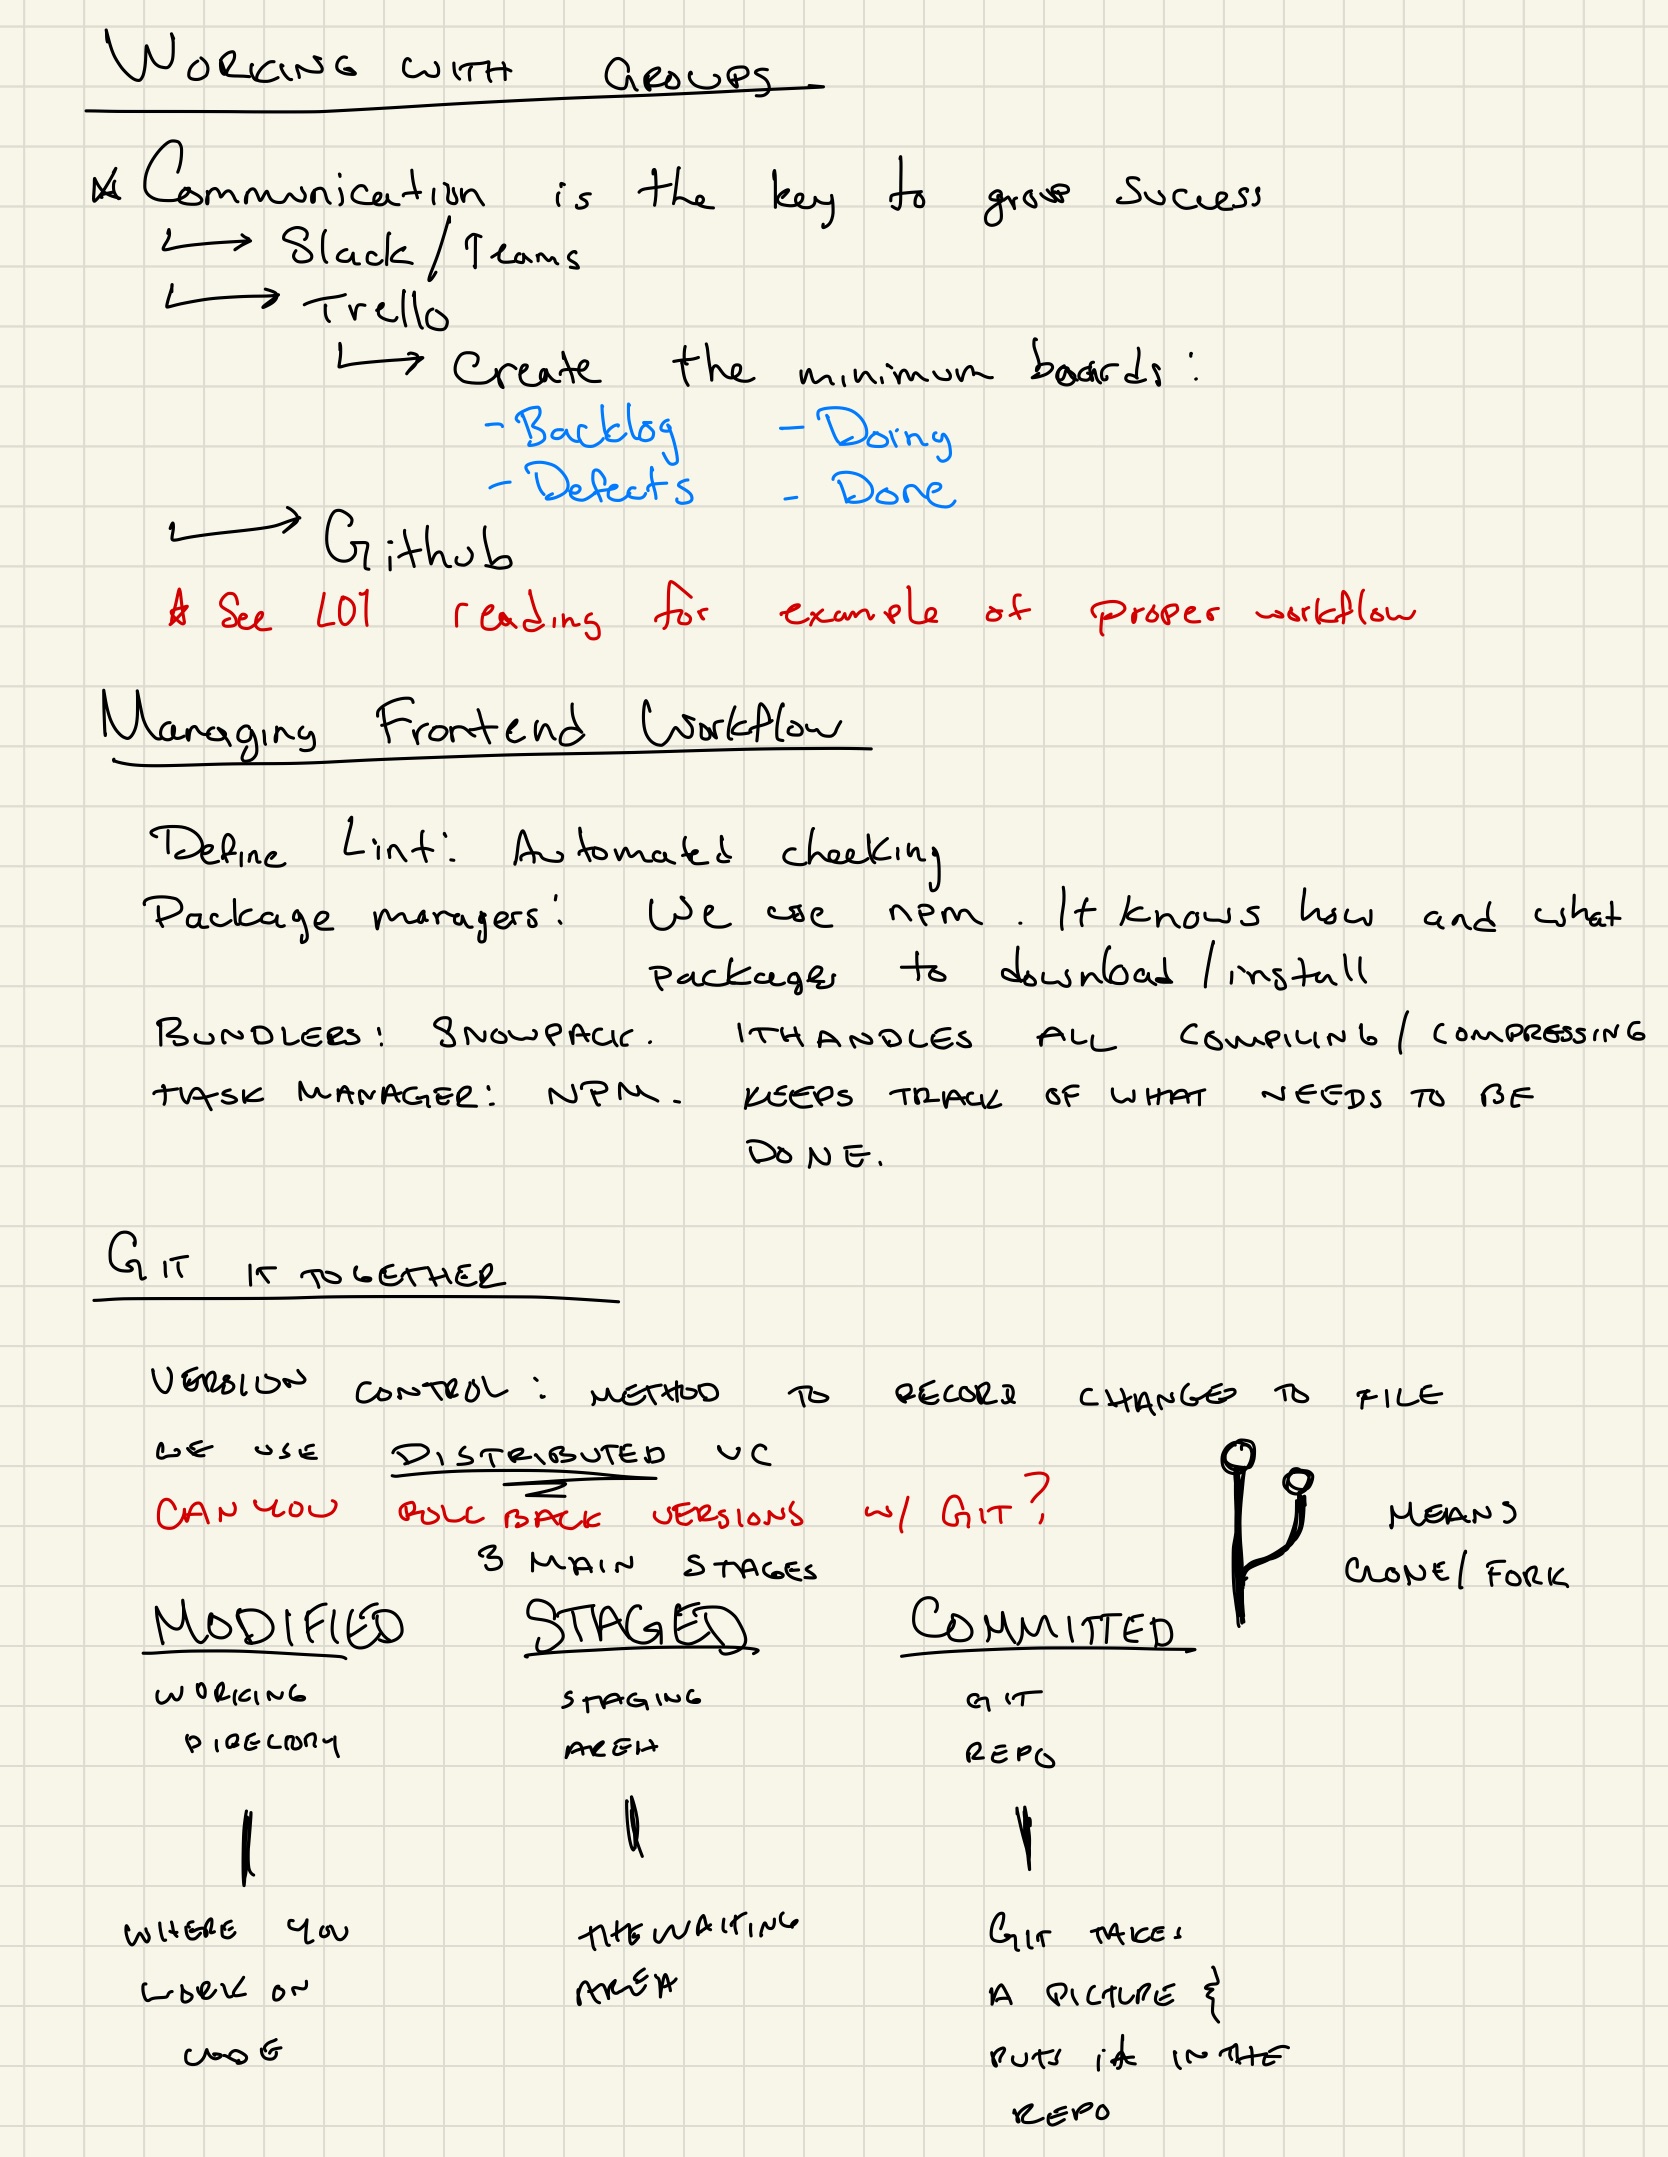 WORKING WITH GROUPS
Communication is the key to group success
Slack/Teams
Trello
Create the minimum boards:
- Backlog - Doing
- Defects - Done
Github
See L01 reading for example of proper workflow
Managing Frontend Workflow
Define Lint: Automated checking
Package managers: We use npm. It knows how and what
packages to download/install
BUNDLERS: SNOWPACK. IT HANDLES ALL COMPILING/COMPRESSING
TASK MANAGER: NPM. KEEPS TRACK OF WHAT NEEDS TO BE
DONE.
GIT IT TOGETHER
VERSION CONTROL: METHOD TO RECORD CHANGES TO FILE
WE USE DISTRIBUTED VC
CAN YOU ROLL BACK VERSIONS W/ GIT?
MEANS
CLONE/FORK
3 MAIN STAGES
MODIFIED STAGED COMMITTED
WORKING STAGING GIT
DIRECTORY AREA REPO
WHERE YOU THE WAITING GIT TAKES
WORK ON AREA A PICTURE &
CODE PUTS it IN THE
REPO